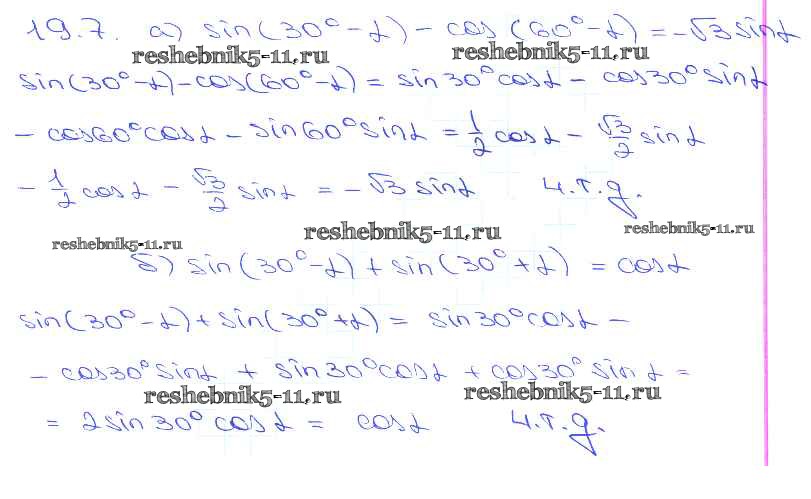 19.7. а) sin(30° - α) - cos(60° - α) = -√3 sinα
reshebnik5-11.ru reshebnik5-11.ru
sin(30° - α) - cos(60° - α) = sin30°cosα - cos30°sinα
- cos60°cosα - sin60°sinα = 1/2 cosα - √3/2 sinα
- 1/2 cosα - √3/2 sinα = -√3 sinα ч.т.д.
reshebnik5-11.ru reshebnik5-11.ru reshebnik5-11.ru
б) sin(30° - α) + sin(30° + α) = cosα
sin(30° - α) + sin(30° + α) = sin30°cosα -
- cos30°sinα + sin30°cosα + cos30°sinα =
reshebnik5-11.ru reshebnik5-11.ru
= 2sin30°cosα = cosα ч.т.д.